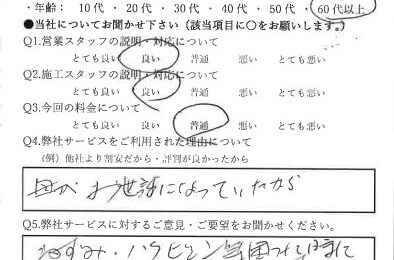 ・年齢： 10代 ・ 20代 ・ 30代 ・ 40代 ・ 50代 ・ 60代以上
●当社についてお聞かせ下さい（該当項目に○をお願いします。）
Q1.営業スタッフの説明・対応について
とても良い 良い 普通 悪い とても悪い
Q2.施工スタッフの説明・対応について
とても良い 良い 普通 悪い とても悪い
Q3.今回の料金について
とても良い 良い 普通 悪い とても悪い
Q4.弊社サービスをご利用された理由について
（例）他社より割安だから・評判が良かったから
母がお世話になっていたから
Q5.弊社サービスに対するご意見・ご要望をお聞かせください。
ねずみ・ハクビシン